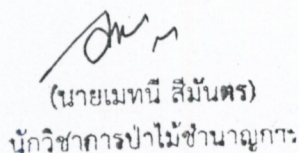 (นายเมทนี สีมันตร)
นักวิชาการป่าไม้ชำนาญการ